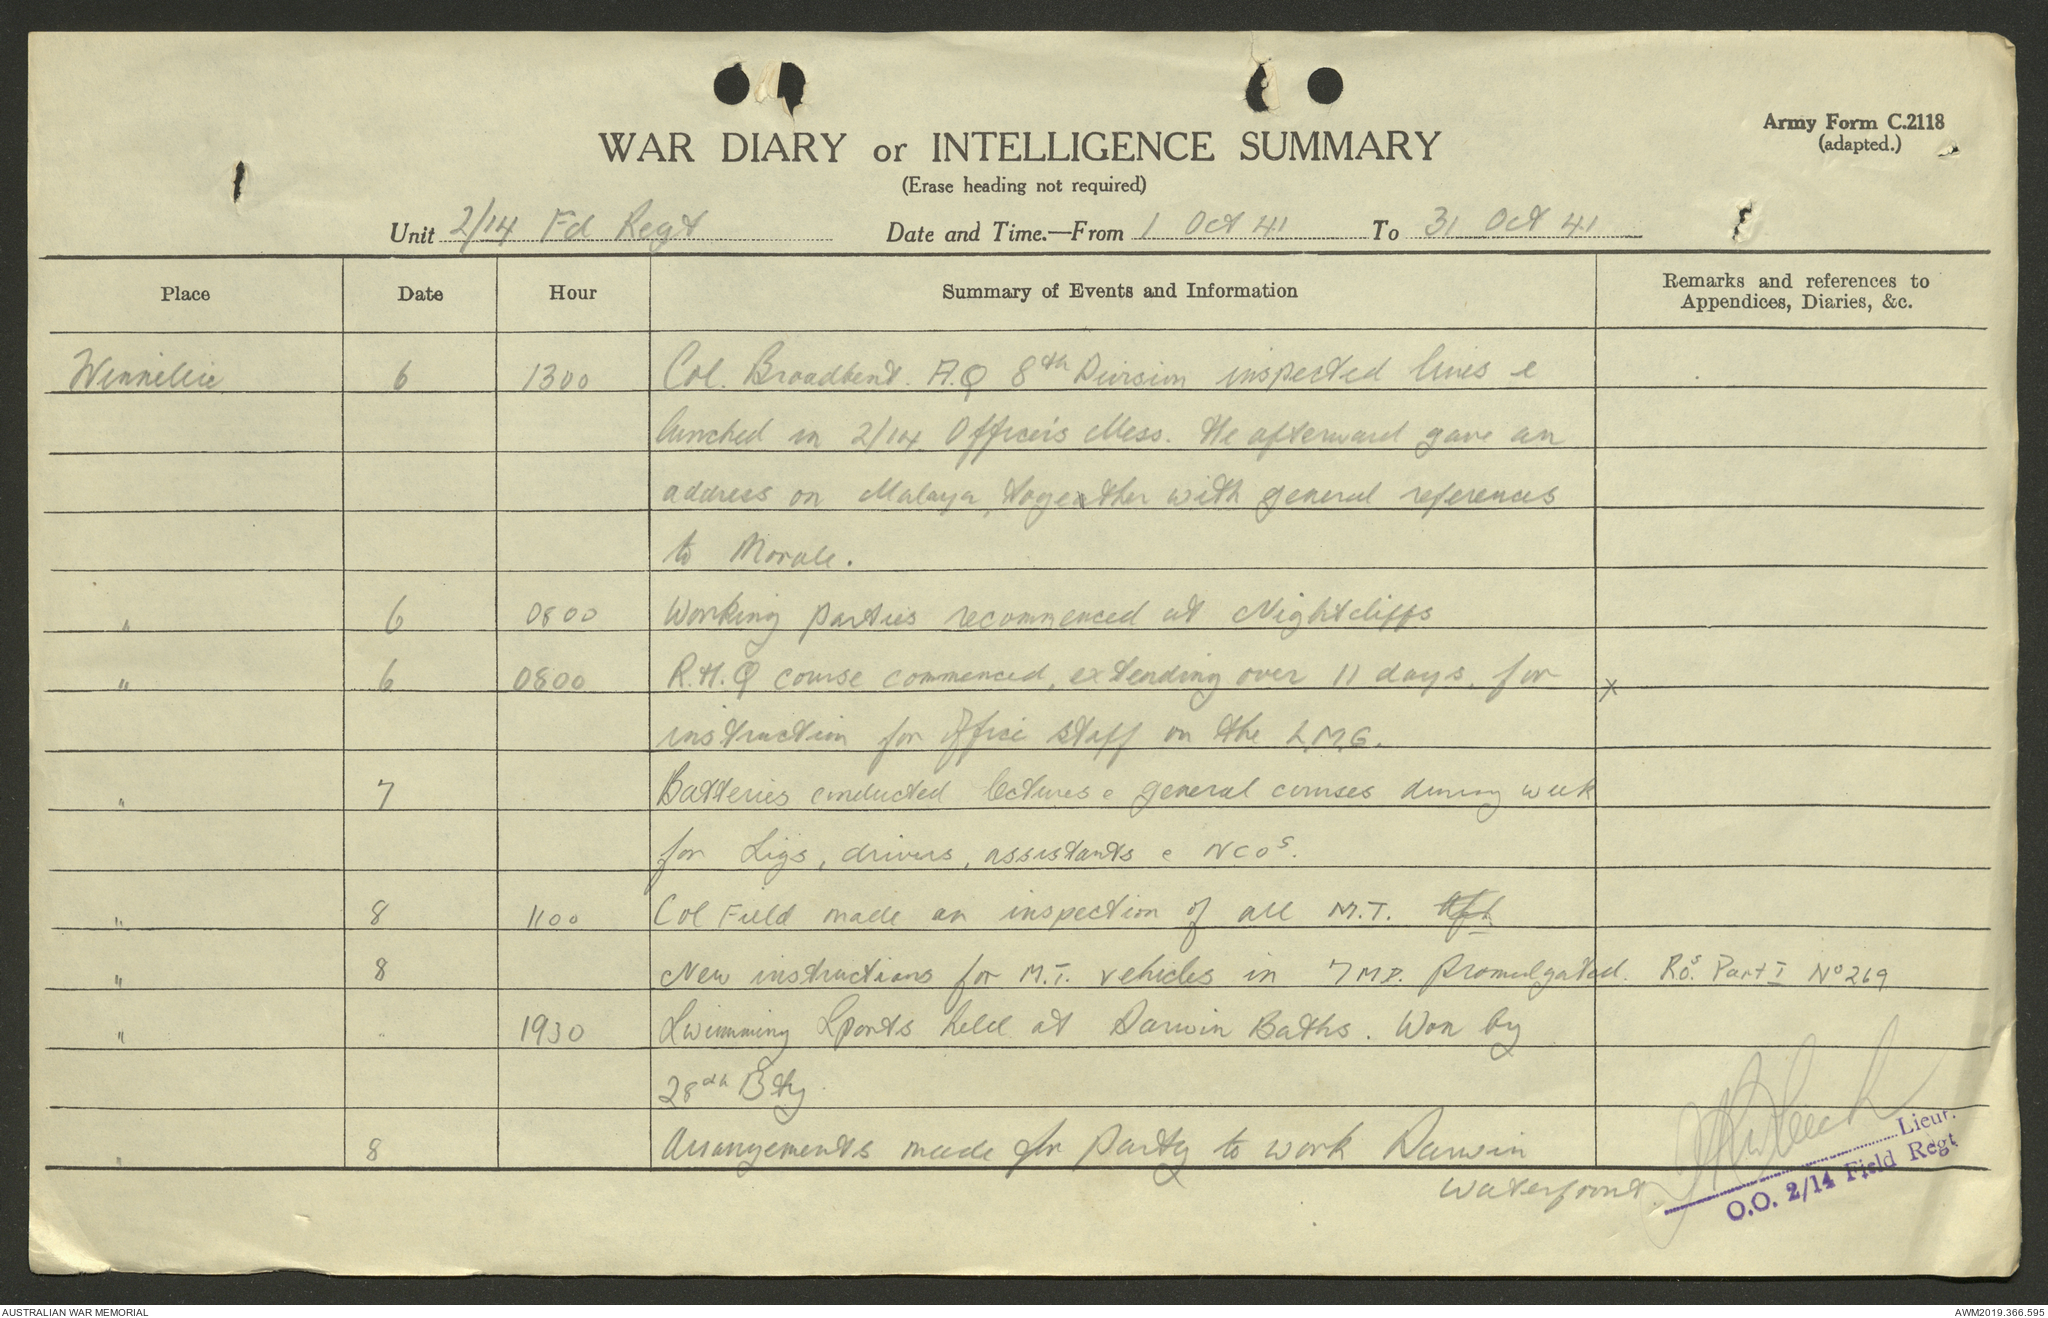 WAR DIARY or INTELLIGENCE SUMMARY
(Erase heading not required)
Army Form C.2118
(adapted.)
Unit 2/14 Fd Regt Date and Time.—From 1 Oct 41 To 31 Oct 41
Place Date Hour Summary of Events and Information Remarks and references to
Appendices, Diaries, &c.
Winnellie 6 1300 Col. Broadbent. A.Q 8th Division inspected lines &
lunched in 2/14 Officers Mess. He afterward gave an
address on Malaya, together with general references
to Morale.
" 6 0800 Working parties recommenced at Nightcliffs
" 6 0800 R.H.Q course commenced, extending over 11 days, for x
instruction for office staff on the L.M.G.
" 7 Batteries conducted lectures & general courses during week
for Sigs, drivers, assistants & NCOs.
" 8 1100 Col Field made an inspection of all M.T.
" 8 New instructions for M.T. vehicles in 7 M.D. promulgated. R.Os. Part I No 269
" " 1930 Swimming Sports held at Darwin Baths. Won by
28th Bty
" 8 Arrangements made for party to work Darwin
Waterfront.
Lieut.
O.O. 2/14 Field Regt
AUSTRALIAN WAR MEMORIAL AWM2019.366.595